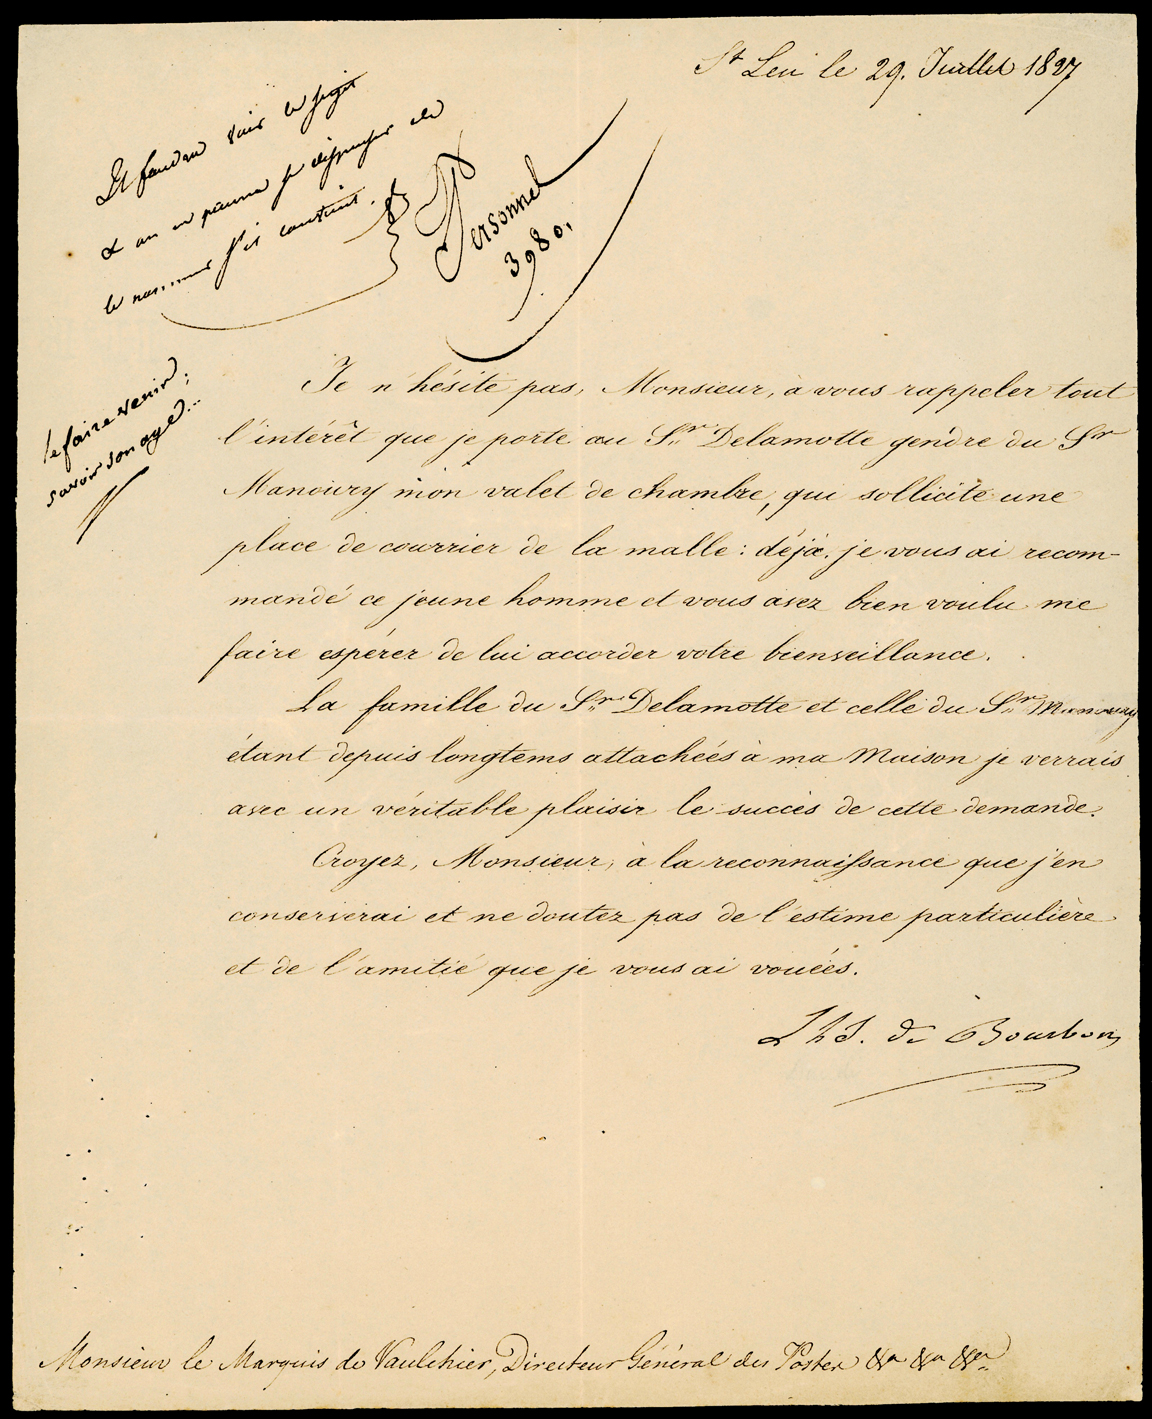 St Leu le 29. Juillet 1827
Il faudra voir le sujet
& on ne pourra se dispenser de
le nommer s'il convient.
Personnel
3980.
le faire venir;
savoir son age...
Je n'hésite pas, Monsieur, à vous rappeler tout
l'intérêt que je porte au Sr. Delamotte gendre du Sr
Manoury mon valet de chambre, qui sollicite une
place de courrier de la malle: déjà je vous ai recom-
mandé ce jeune homme et vous avez bien voulu me
faire espérer de lui accorder votre bienveillance.
La famille du Sr. Delamotte et celle du Sr. Manoury
étant depuis longtems attachées à ma Maison je verrais
avec un véritable plaisir le succès de cette demande.
Croyez, Monsieur, à la reconnaissance que j'en
conserverai et ne doutez pas de l'estime particulière
et de l'amitié que je vous ai vouées.
L h J. de Bourbon
Monsieur le Marquis de Vaulchier, Directeur Général des Postes &a &a &a